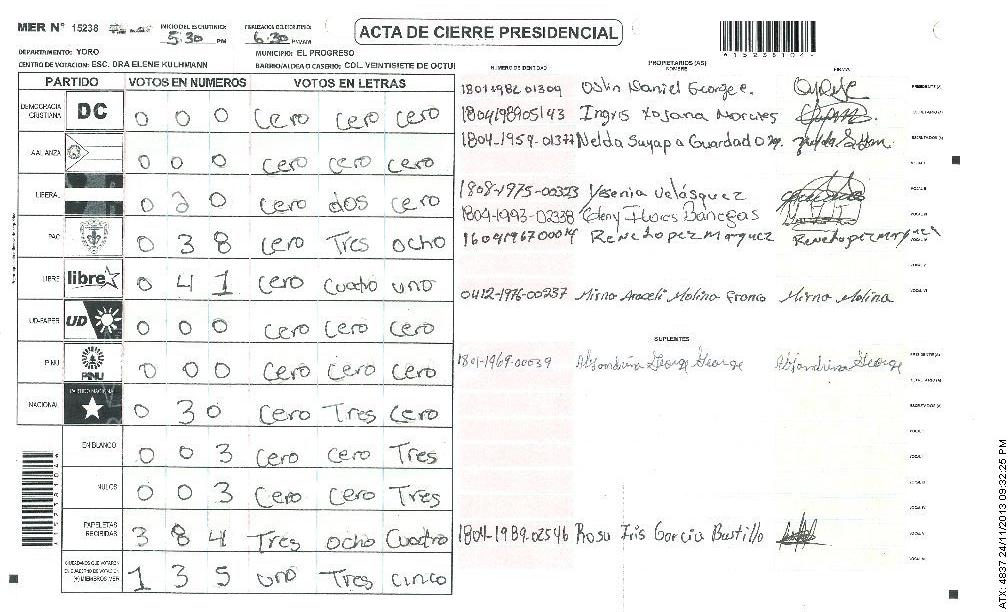 MER Nº 15238
INICIO DEL ESCRUTINIO: 5:30 PM
FINALIZACION DEL ESCRUTINIO: 6:30 PM/AM
ACTA DE CIERRE PRESIDENCIAL
DEPARTAMENTO: YORO
MUNICIPIO: EL PROGRESO
CENTRO DE VOTACION: ESC. DRA ELENE KULHMANN
BARRIO/ALDEA O CASERIO: COL. VEINTISIETE DE OCTU
PARTIDO VOTOS EN NUMEROS VOTOS EN LETRAS
DEMOCRACIA CRISTIANA DC 0 0 0 Cero Cero Cero
AALANZA 0 0 0 Cero Cero Cero
LIBERAL 0 2 0 Cero dos Cero
PAC 0 3 8 Cero Tres ocho
LIBRE libre 0 4 1 Cero Cuatro uno
UD-FAPER UD 0 0 0 Cero Cero Cero
PINU PINU 0 0 0 Cero Cero Cero
NACIONAL PARTIDO NACIONAL 0 3 0 Cero Tres Cero
EN BLANCO 0 0 3 Cero Cero Tres
NULOS 0 0 3 Cero Cero Tres
PAPELETAS RECIBIDAS 3 8 4 Tres ocho Cuatro
CIUDADANOS QUE VOTARON EN CUADERNO DE VOTACION (+) MIEMBROS MER 1 3 5 uno Tres cinco
NUMERO DE IDENTIDAD PROPIETARIOS (AS) NOMBRE FIRMA
1801-1982 01309 Oslin Daniel George e. PRESIDENTE (A)
1804198905143 Ingris Xosana Morales SECRETARIO (A)
1804-1959-01377 Nelda Suyapa Guardado
1808-1975-00323 Yesenia Velásquez
1804-1993-02338 Flores Banegas
1604196700014 Rene Lopez Marquez Rene Lopez Marquez
0412-1976-00237 Mirna Araceli Molina Franco Mirna Molina
SUPLENTES
1801-1969-00039 Alejandrina George George Alejandrina George
1804-1989-02546 Rosa Iris Garcia Bustillo
15238104
ATX: 4837 24/11/2013 09:32:25 PM